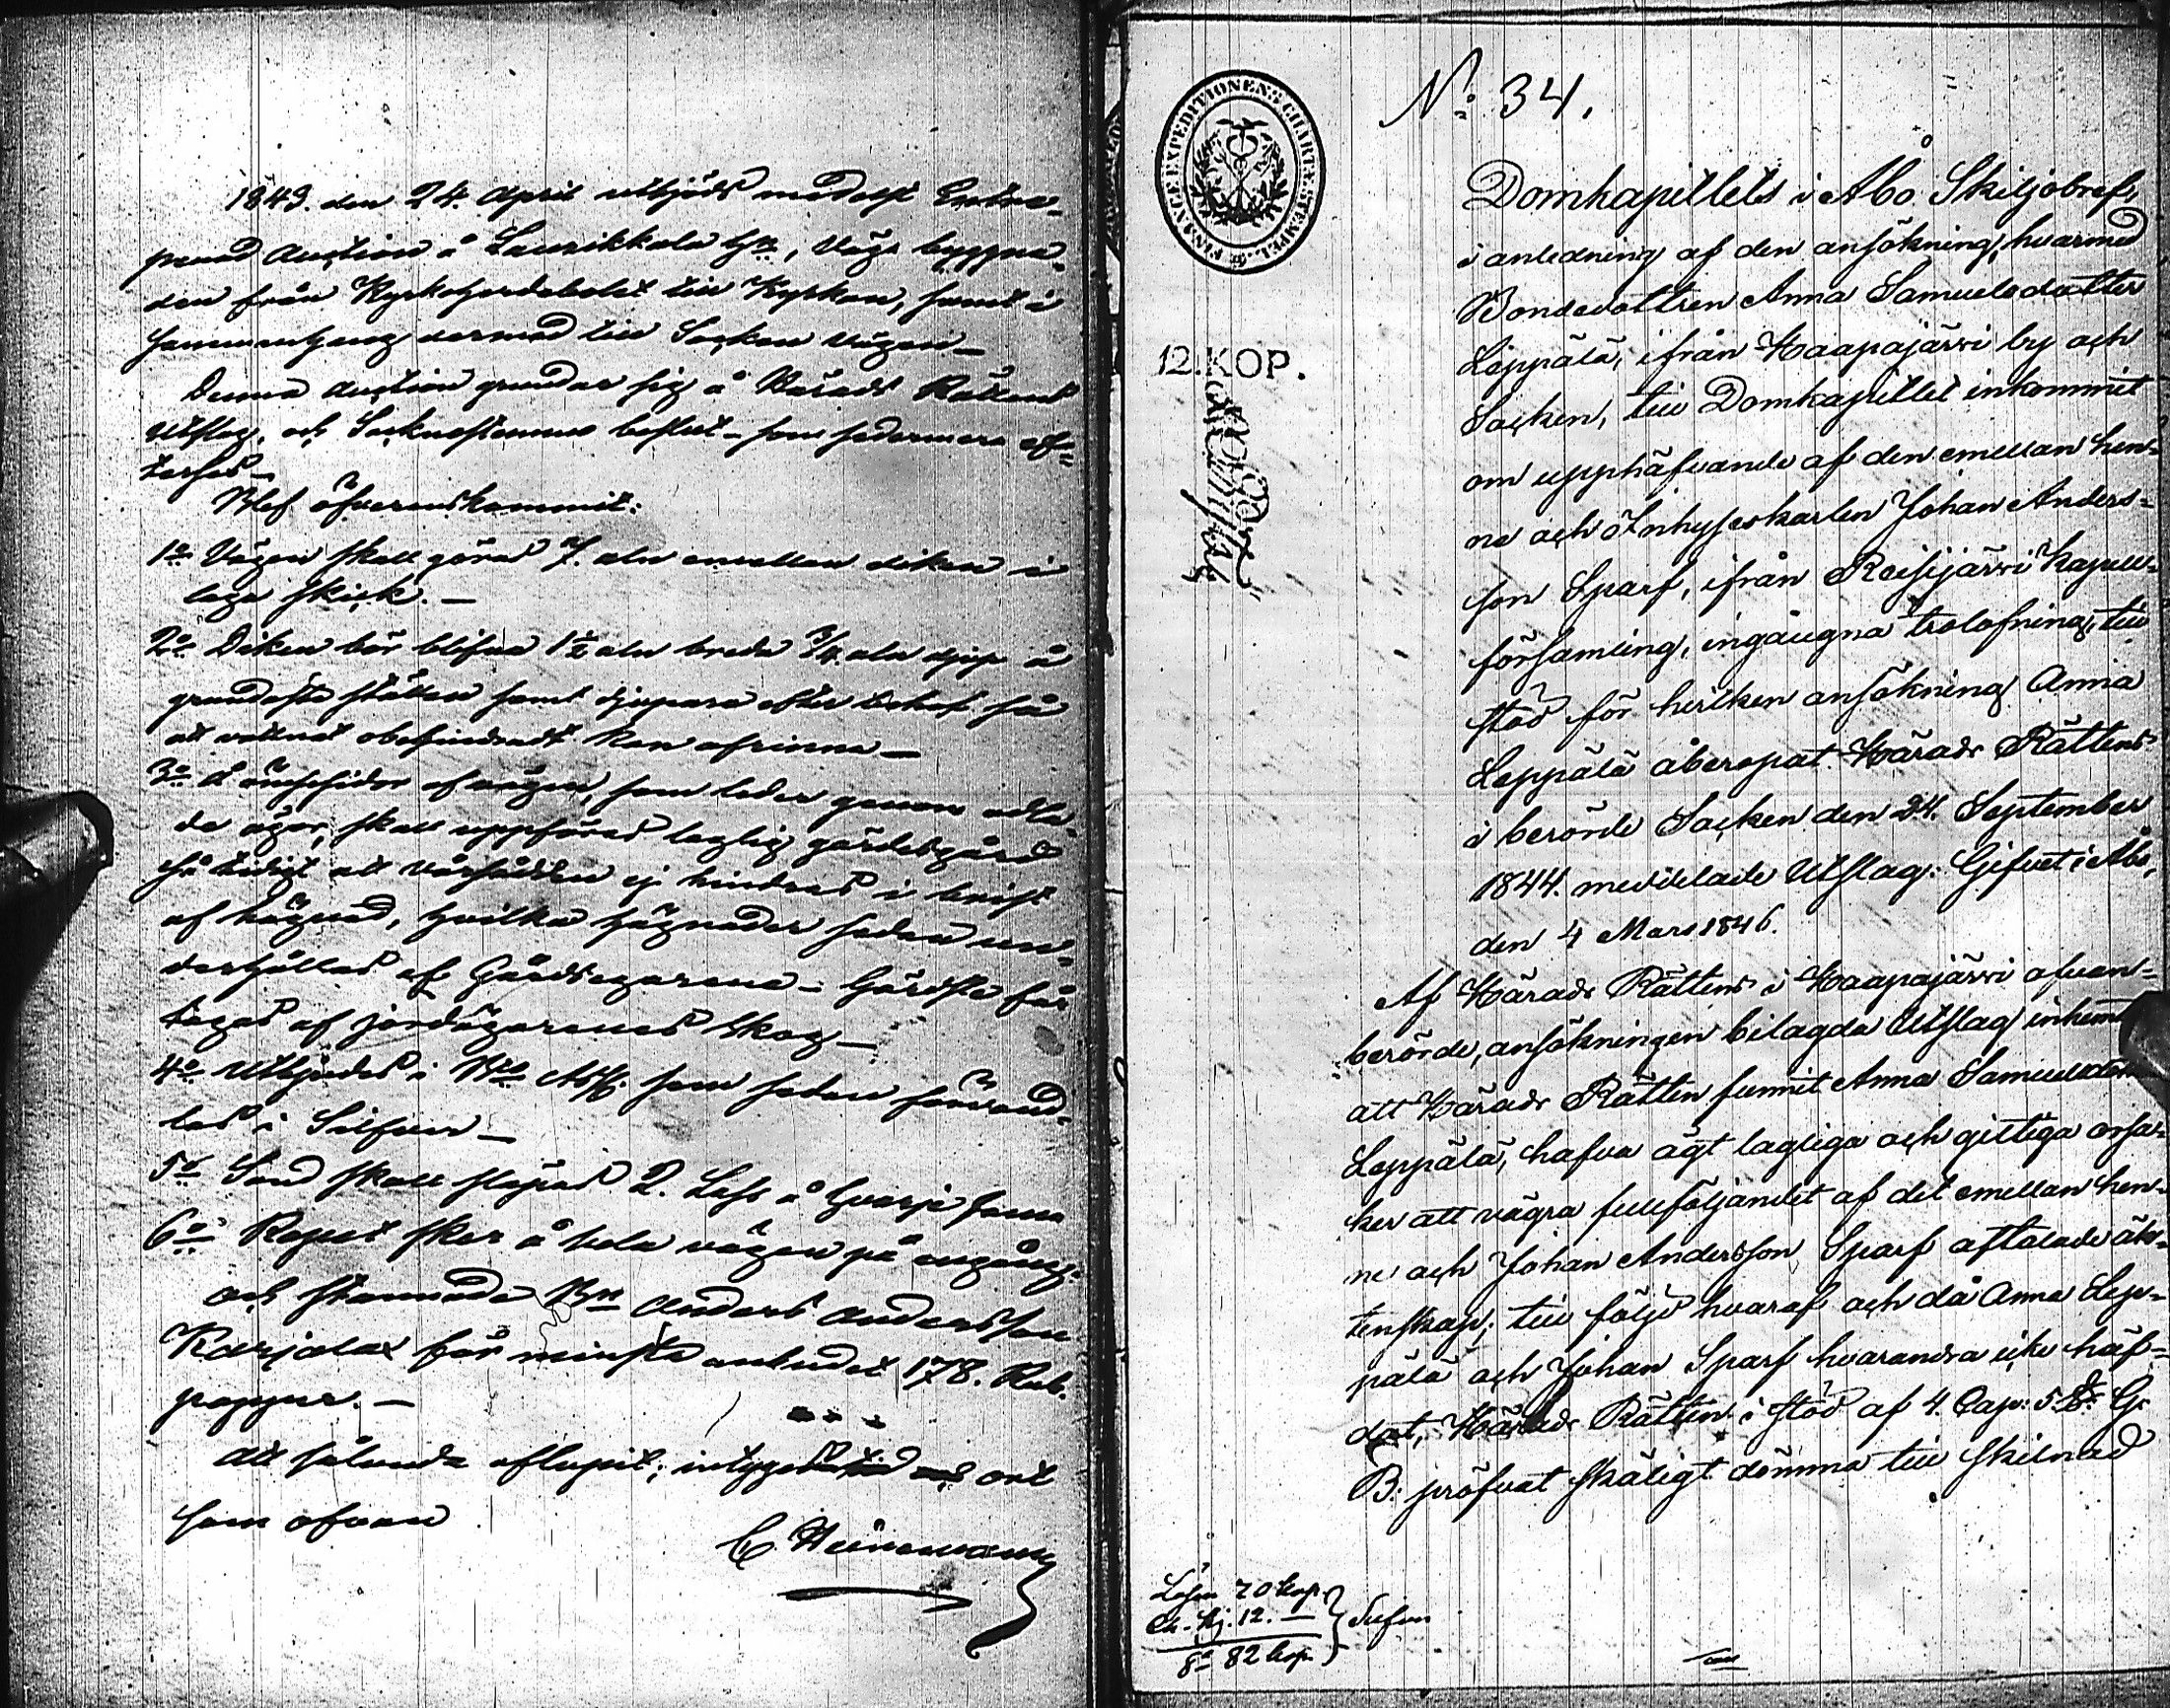 1843. den 24. April utbjöds medelst Entre-
prenad Auction å Laurikkala Hn, Vägs byggna-
den från Kyrkoherdebolet till Kyrkan, samt i
sammanhang dermed till Socken vägen –
Denna auction grundar sig å Härads Rättens
Utslag, och Socknestämmo beslut – som sedermera ef-
terses –
Blef öfverenskommit:
1o Vägen skall göras 7. aln emellan diken i
laga skick. –
2o Diken bör blifva 1½ aln breda ¾ aln djup å
grundaste ställen samt djupare efter behof så
att vattnet obehindradt kan afrinna –
3o Å ömse sidor af vägen, som leder genom odla-
de ägor, skall uppföras laglig gärdesgård
så tidigt att vårsådden ej hindras i brist
af hägnad, hvilka hägnader sedan un-
derhållas af Gårdsegarena – Gärdsle får
tagas af jordägarenes skog –
4o Utbjudes i Bco Ass. som sedan förvand-
las i Silfver –
5o Sand skall släpas 2. Lass å hvarje famn
6o Ropet sker å hela vägen på engång.
och stannade Bn Anders Andersson
Karjalax för minsta anbudet 178. Rub.
papper. –
Att sålunda aflupit; intygas ort
som ofvan
C. Heinemann
No 34.
FINANCE EXPEDITIONENS CHARTÆ STEMPEL
12. KOP.
Domkapitlets i Åbo Skiljobref,
i anledning af den ansökning, hvarmed
Bondedottren Anna Samuelsdotter
Leppälä, ifrån Haapajärvi by och
Socken, till Domkapitlet inkommit
om upphäfvande af den emellan hen-
ne och Inhyseskarlen Johan Anders-
son Sparf, ifrån Reisijärvi Kapell-
församling, ingångna trolofning, till
stöd för hvilken ansökning Anna
Leppälä åberopat Härads Rättens
i berörde Socken den 24. September
1844. meddelade Utslag: Gifvet i Åbo,
den 4 Mars 1846.
Af Härads Rättens i Haapajärvi ofvan-
berörde, ansökningen bilagda Utslag inhemt
att Härads Rätten funnit Anna Samuelsdotter
Leppälä, hafva ägt lagliga och giltiga orsa-
ker att vägra fullföljandet af det emellan hen-
ne och Johan Andersson Sparf aftalade äk-
tenskap; till följd hvaraf och då Anna Lep-
pälä och Johan Sparf hvarandra icke häf-
dat, Härads Rätten i stöd af 4. Cap: 5. §: G.
B: pröfvat skäligt dömma till skilnad
Lösen 70 kop.
Ch. Sg. 12. –
Sa 82 kop. } Silfver